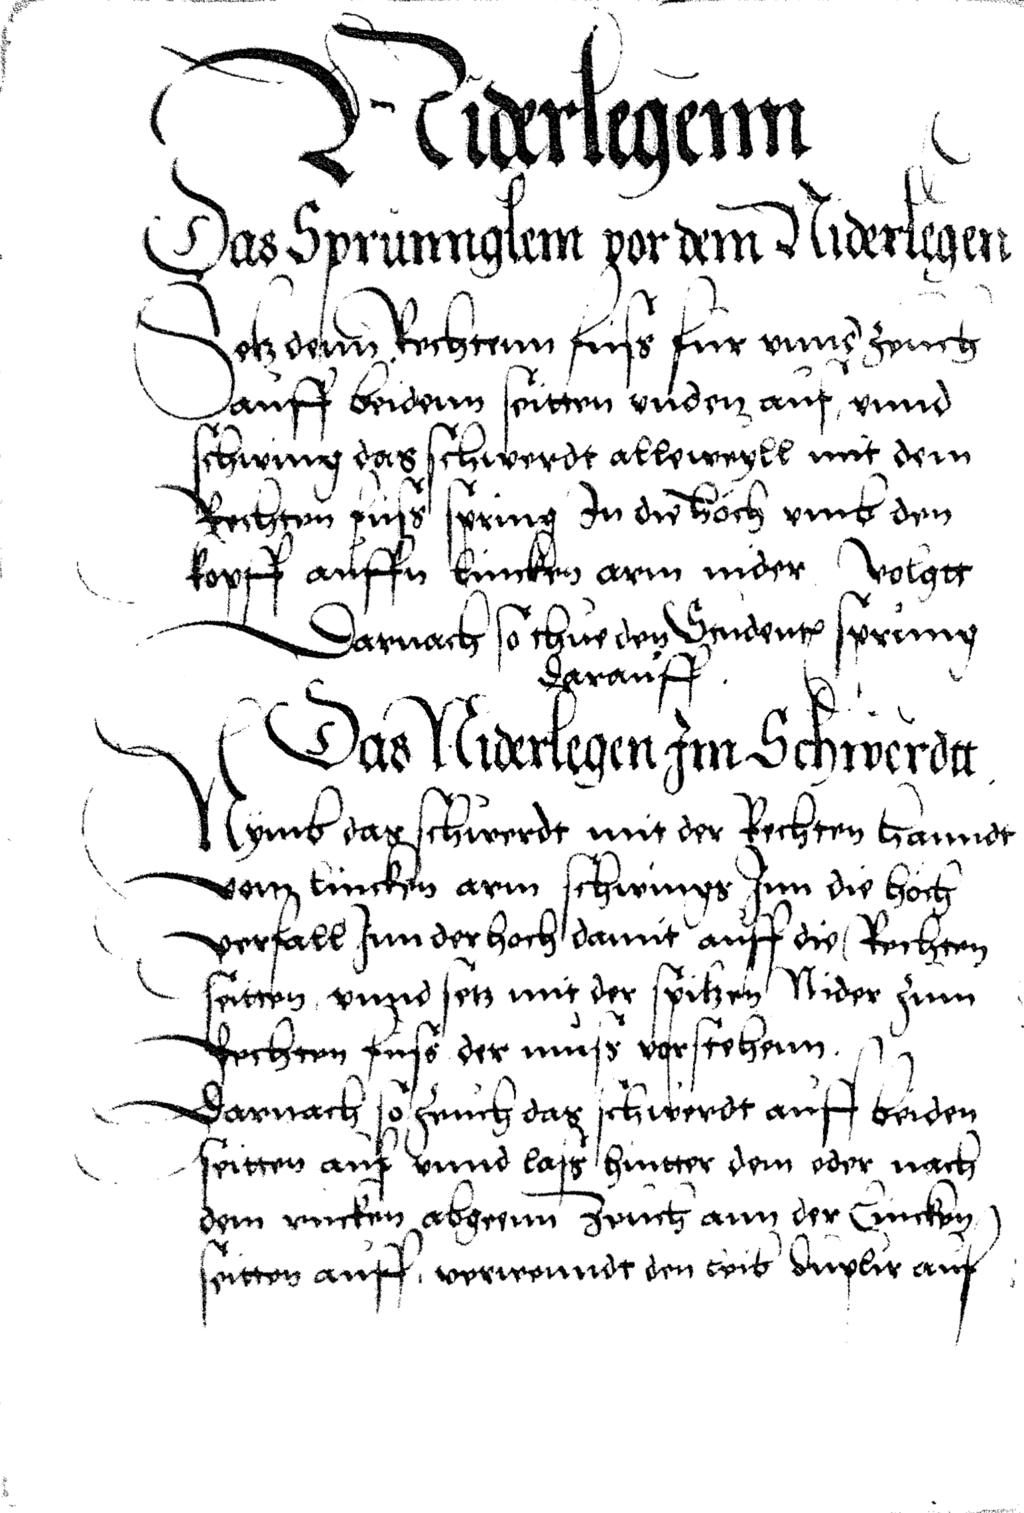 Niderlegenn
Das Sprünnglem vor dem Niderlegen
Setz denn Rechtenn fuß für vnnd zeuch
auff beidenn seitten vnden auf, vnnd
schwing das schwerdt alleweyll mit dem
Rechten fuß spring In die höch vmb den
kopff auffn lincken arm nider. Volgtt
Darnach so thue den Student sprüng
darauff.
Das Niderlegen Jm Schwerdtt
Nymb das schwerdt mit der Rechten hanndt
vom lincken arm schwings Jnn die höch
verfall Jnn der hoch damit auff die Rechten
seitten, vnnd setz mit der spitzen Nider zum
Rechten fuß der muß vorstehenn.
Darnach so zeuch das schwerdt auff beiden
seitten auf vnnd laß hintter dem oder nach
dem rucken abgeenn Zeuch ann der Lincken
seitten auff, verwenndt den leib duplir auf